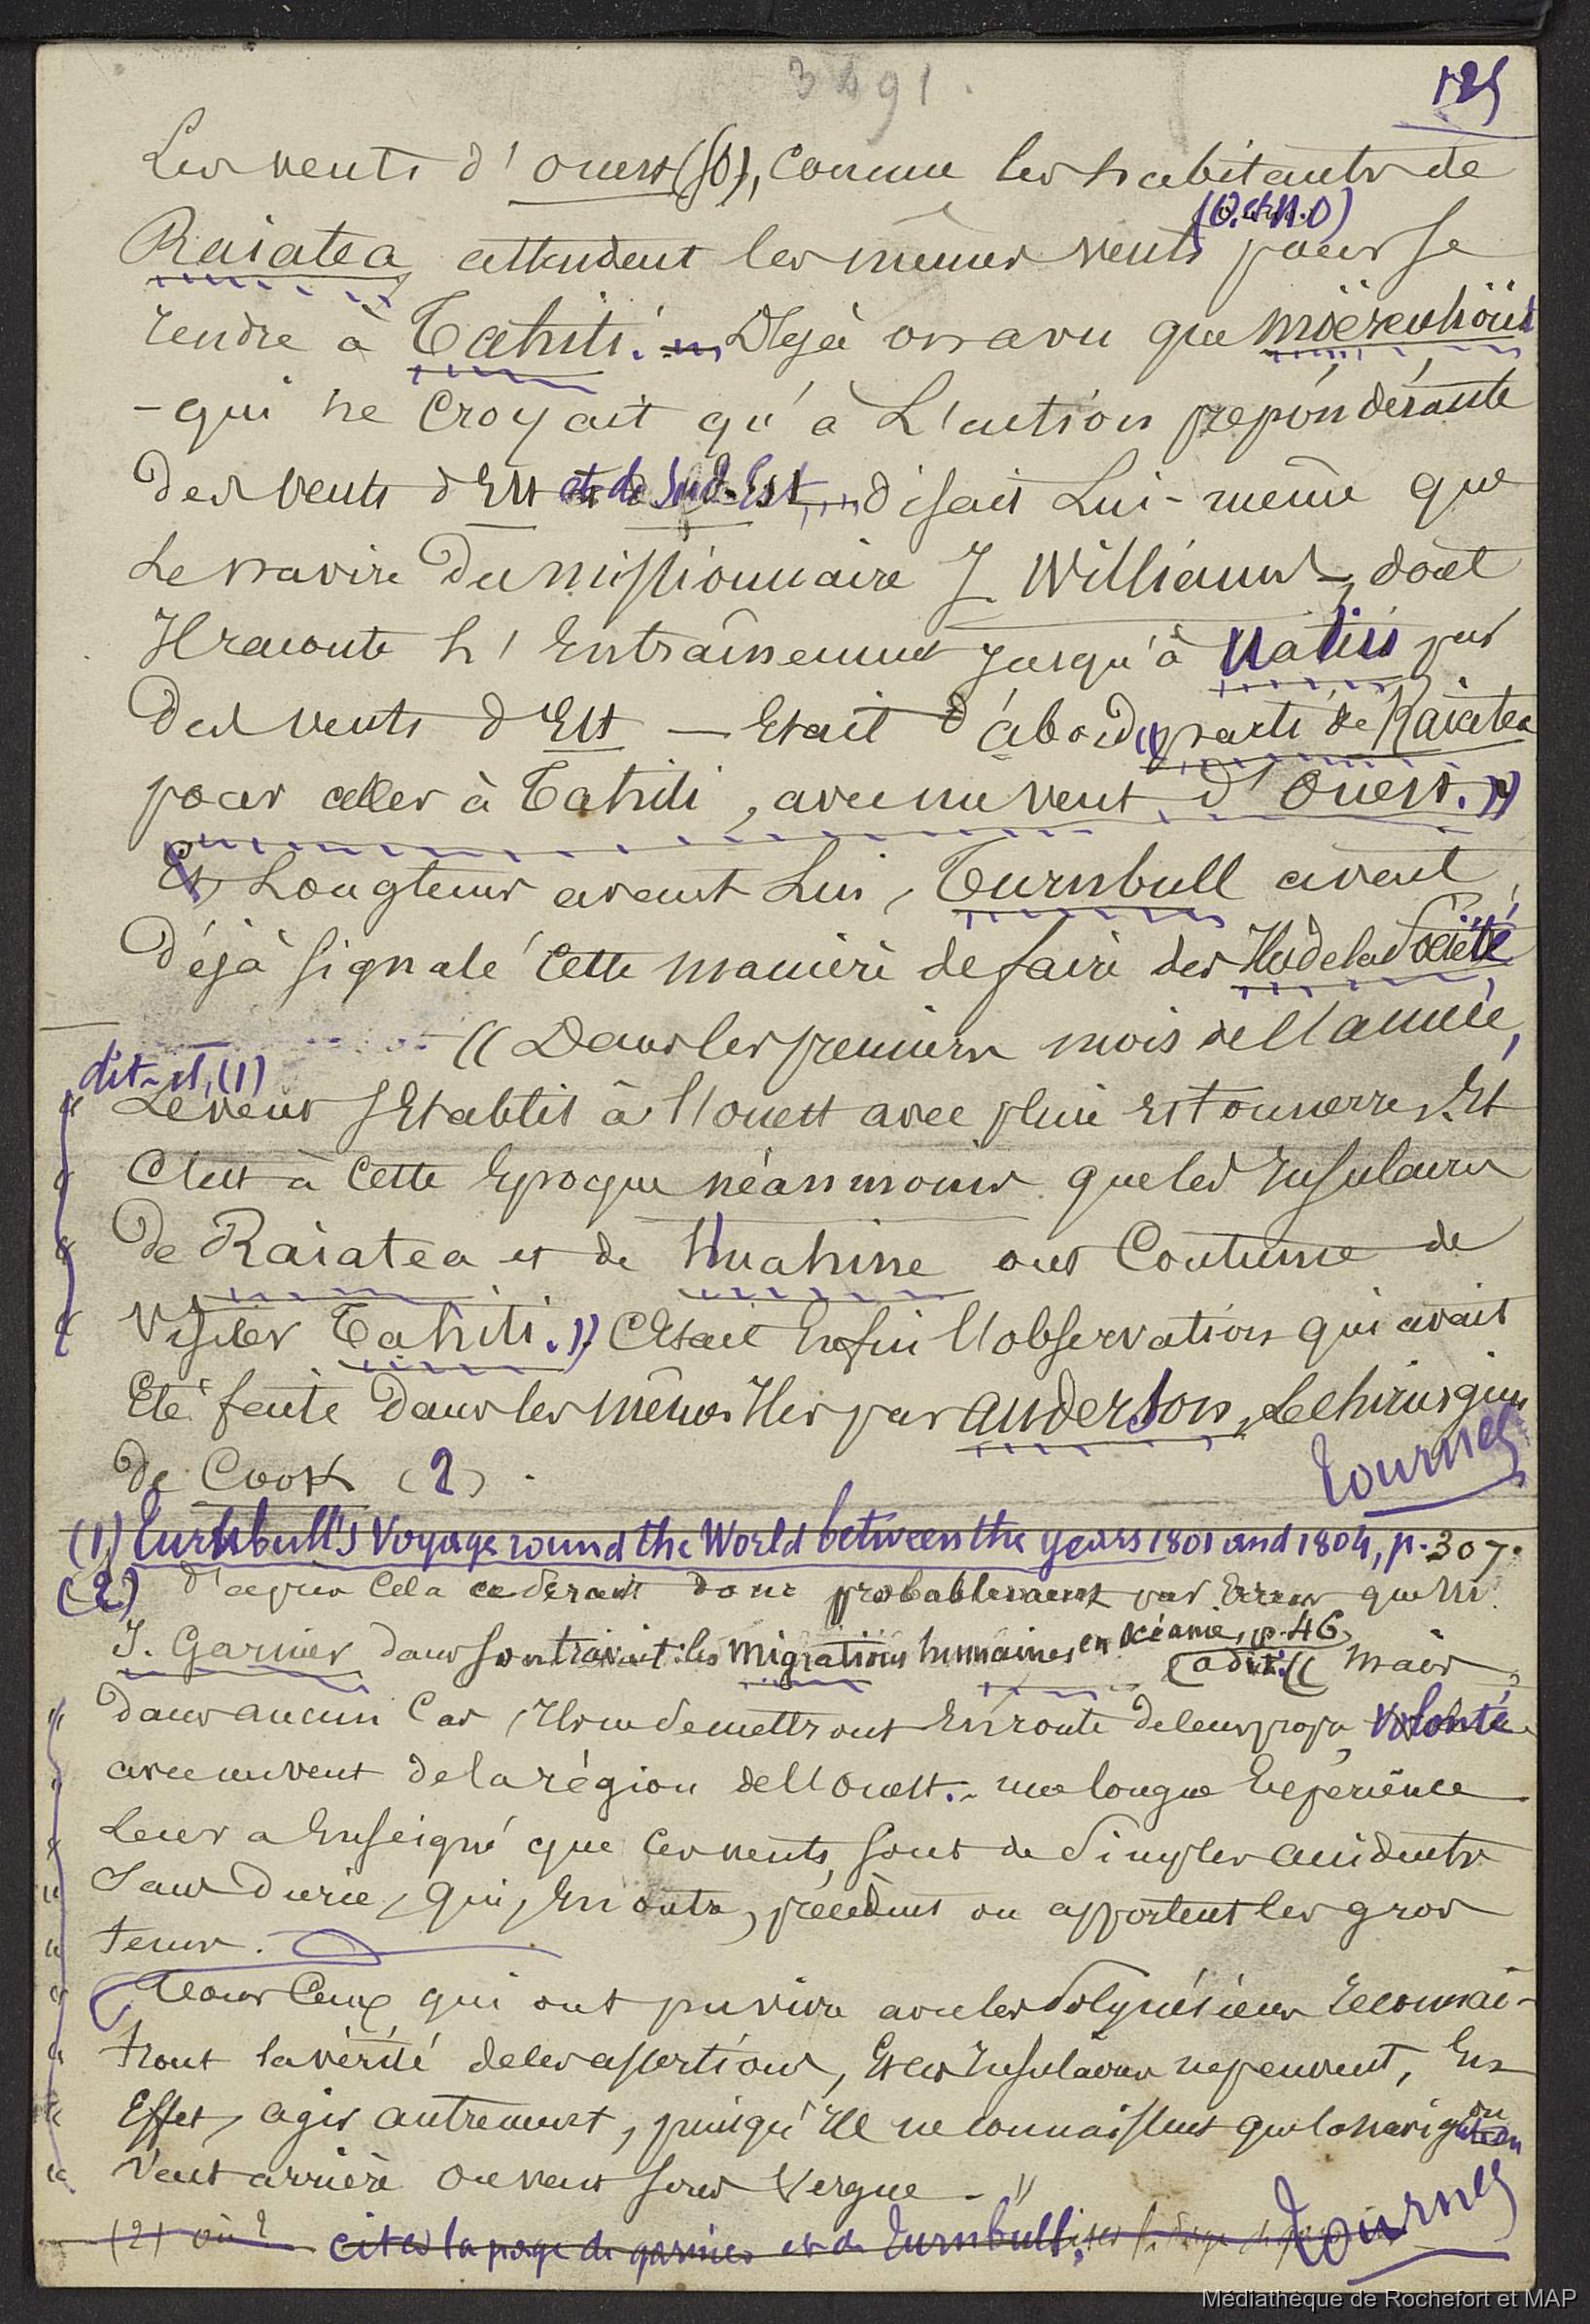 3491.
125
Les vents d'ouest (SO), comme les habitants de
Raiatea attendent les mêmes vents (O. et N.O) pour se
rendre à Tahiti. Déjà on a vu que Moërenhoüt
- qui ne croyait qu'à l'action prépondérante
des vents d'Est et de Sud-Est, disait lui-même que
le navire du missionnaire J. Williams, dont
Il raconte l'Entraînement jusqu'à par
des vents d'Est — Etait d'abord "parti de Raiatea
pour aller à Tahiti, avec un vent d'Ouest."
Et Longtems avant Lui, Turnbull avait
Déjà signalé cette manière de faire des Iles de la Société
dit-il, (1) "Dans les premiers mois de l'année,
Le vent s'Etablit à l'ouest avec pluie et tonnerre. Et
C'est à cette Epoque néanmoins que les Insulaires
de Raiatea et de Huahine ont Coutume de
Visiter Tahiti." C'Etait Enfin l'observation qui avait
Eté faite dans les mêmes Iles par Anderson, le chirurgien
de Cook (2).
Tournez
(1) Turnbull's Voyage round the World between the years 1801 and 1804, p. 307.
(2) D'après Cela ce serait donc probablement par Erreur que M.
J. Garnier dans son travail: les Migrations humaines en Océanie, p. 46,
a dit: "Mais
dans aucun Cas, Ils ne se mettront En route de leur propre volonté
avec un vent de la région de l'Ouest. une longue Expérience
Leur a Enseigné que Ces vents sont de Simples accidents
Sans Durée, qui, En outre, précèdent ou apportent les gros
tems.
Tous Ceux qui ont pu vivre avec les Polynésiens reconnaî-
tront la vérité de ces assertions, Et ces Insulaires ne peuvent, En
Effet, agir autrement, puisqu'Ils ne connaissent que la navigation
Vent arrière ou vent sous Vergue."
(2) où? citer la page de garnier et de Turnbull,
Tournez
Médiathèque de Rochefort et MAP